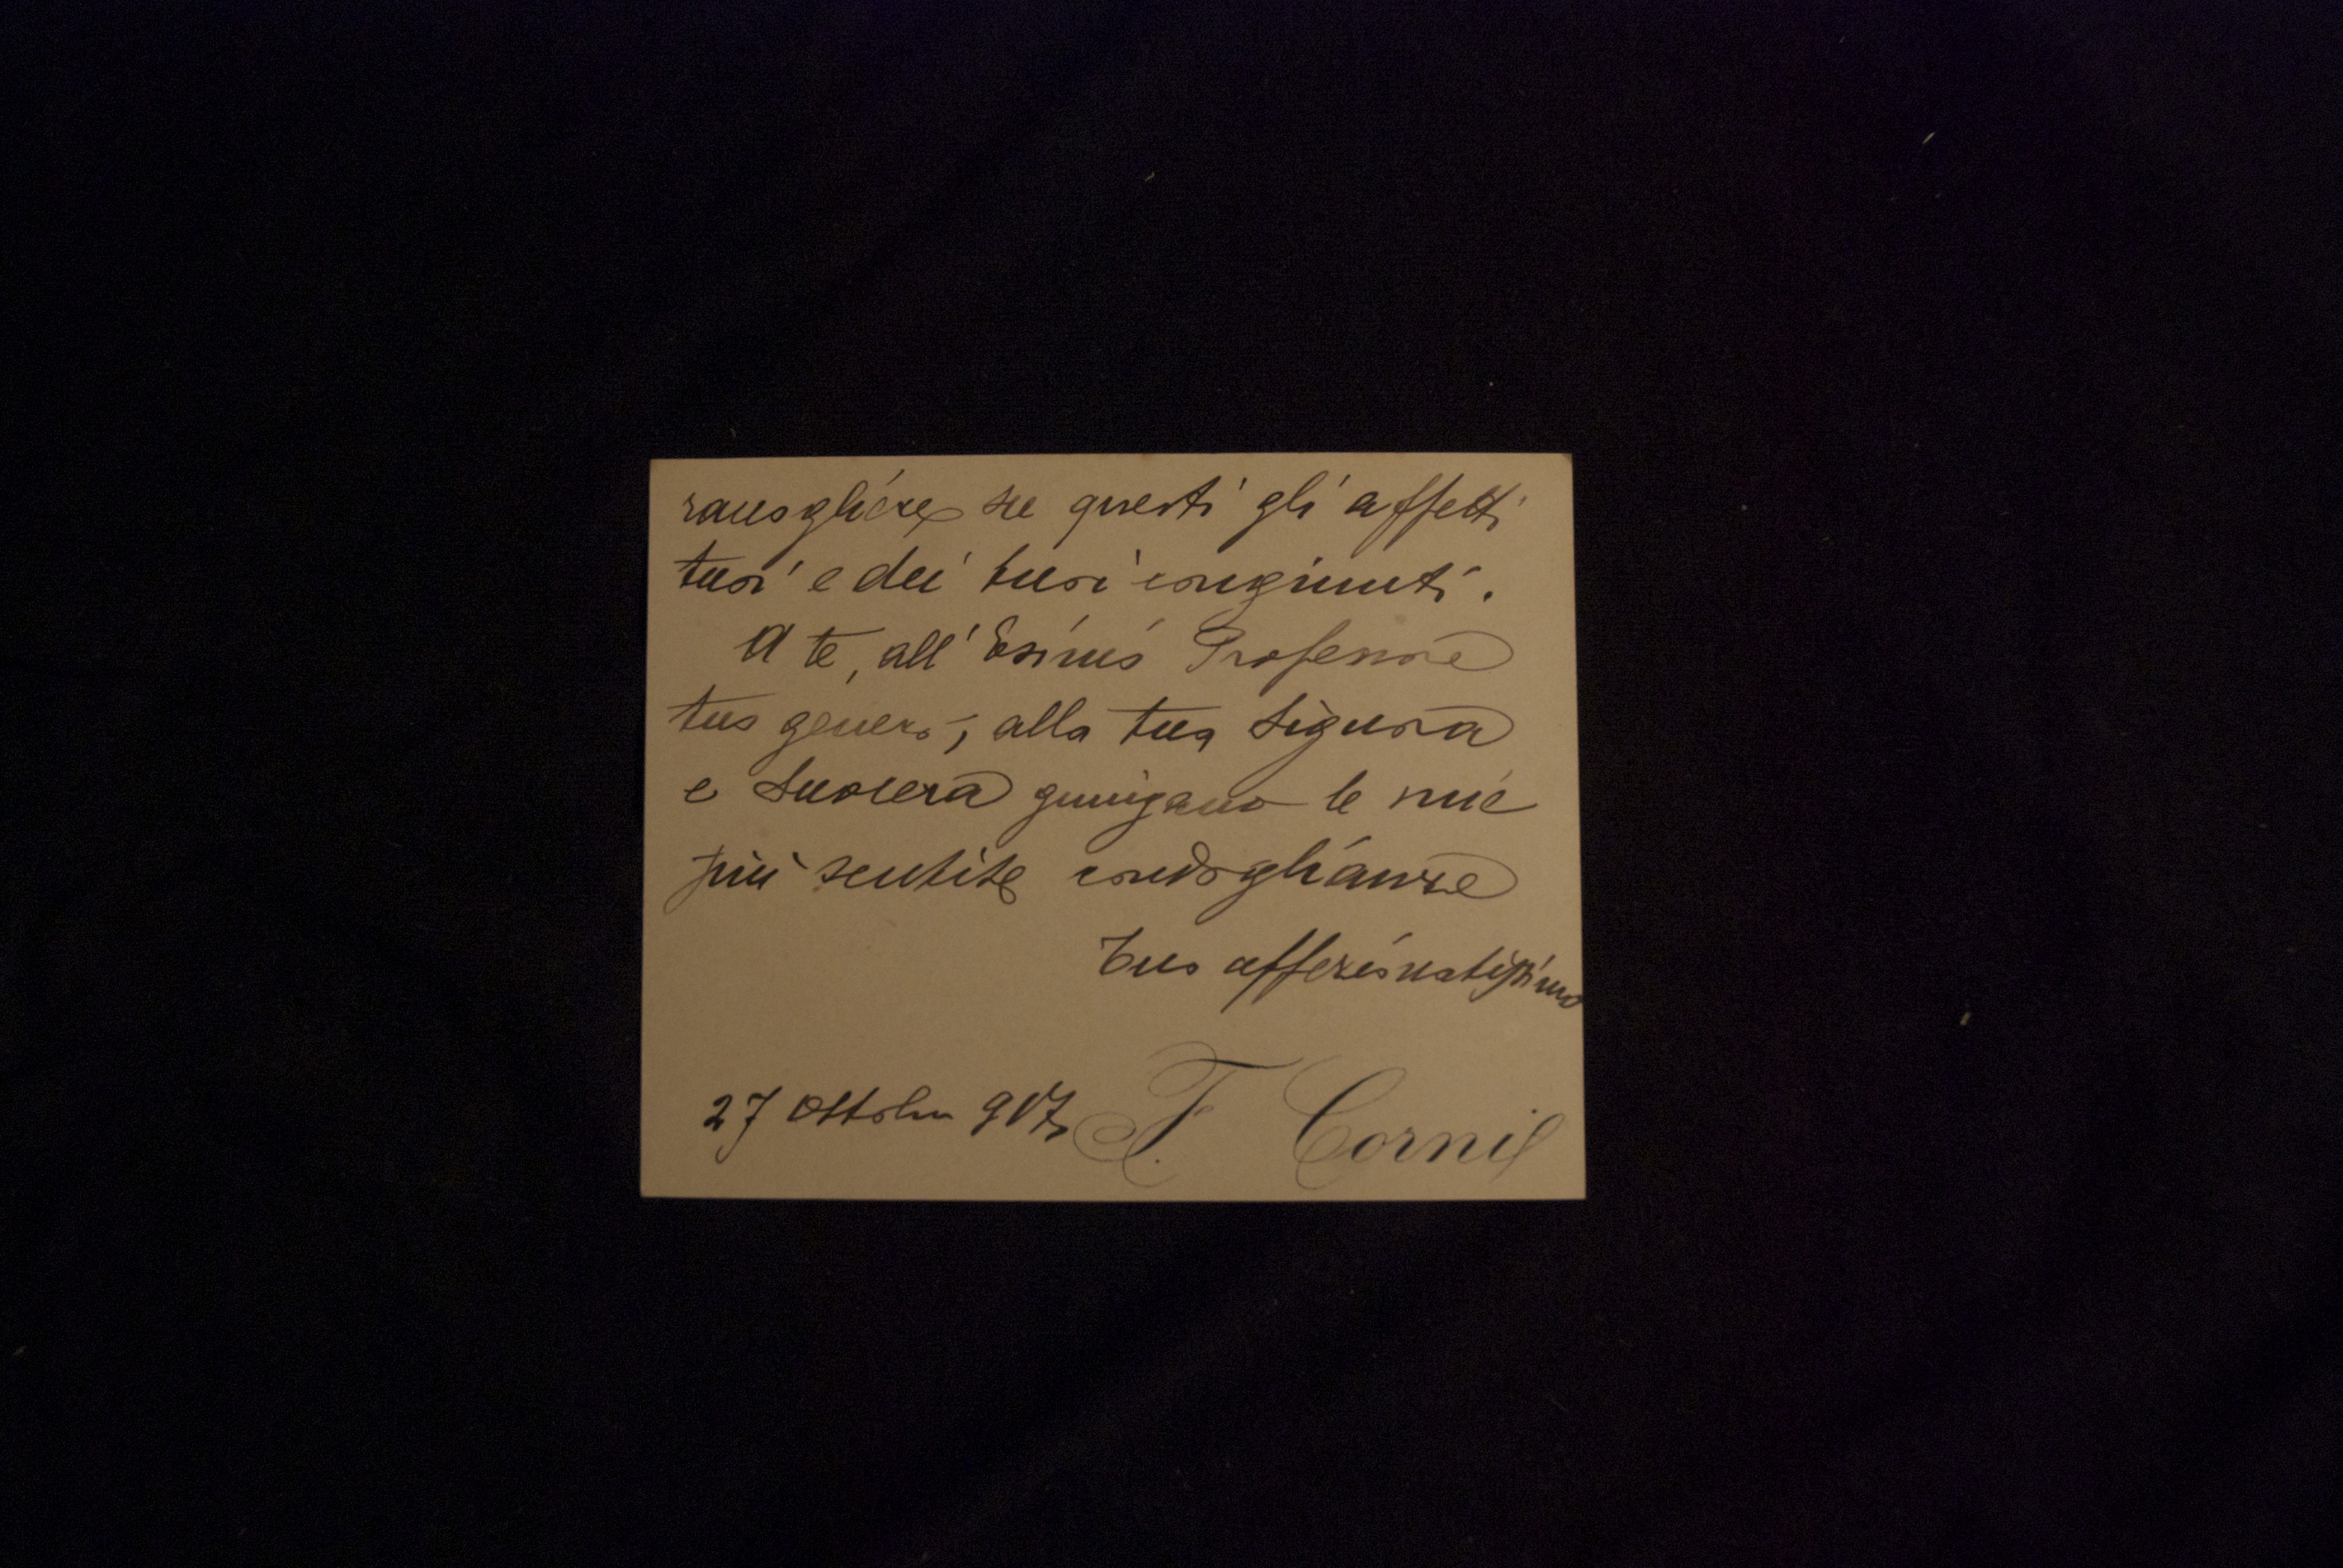 raccogliere su questi gli affetti
tuoi e dei tuoi congiunti.
A te, all'Esimio Professore
tuo genero, alla tua Signora
e Suocera giungano le mie
più sentite condoglianze
Tuo affezionatissimo
27 Ottobre 907 F. Cornil